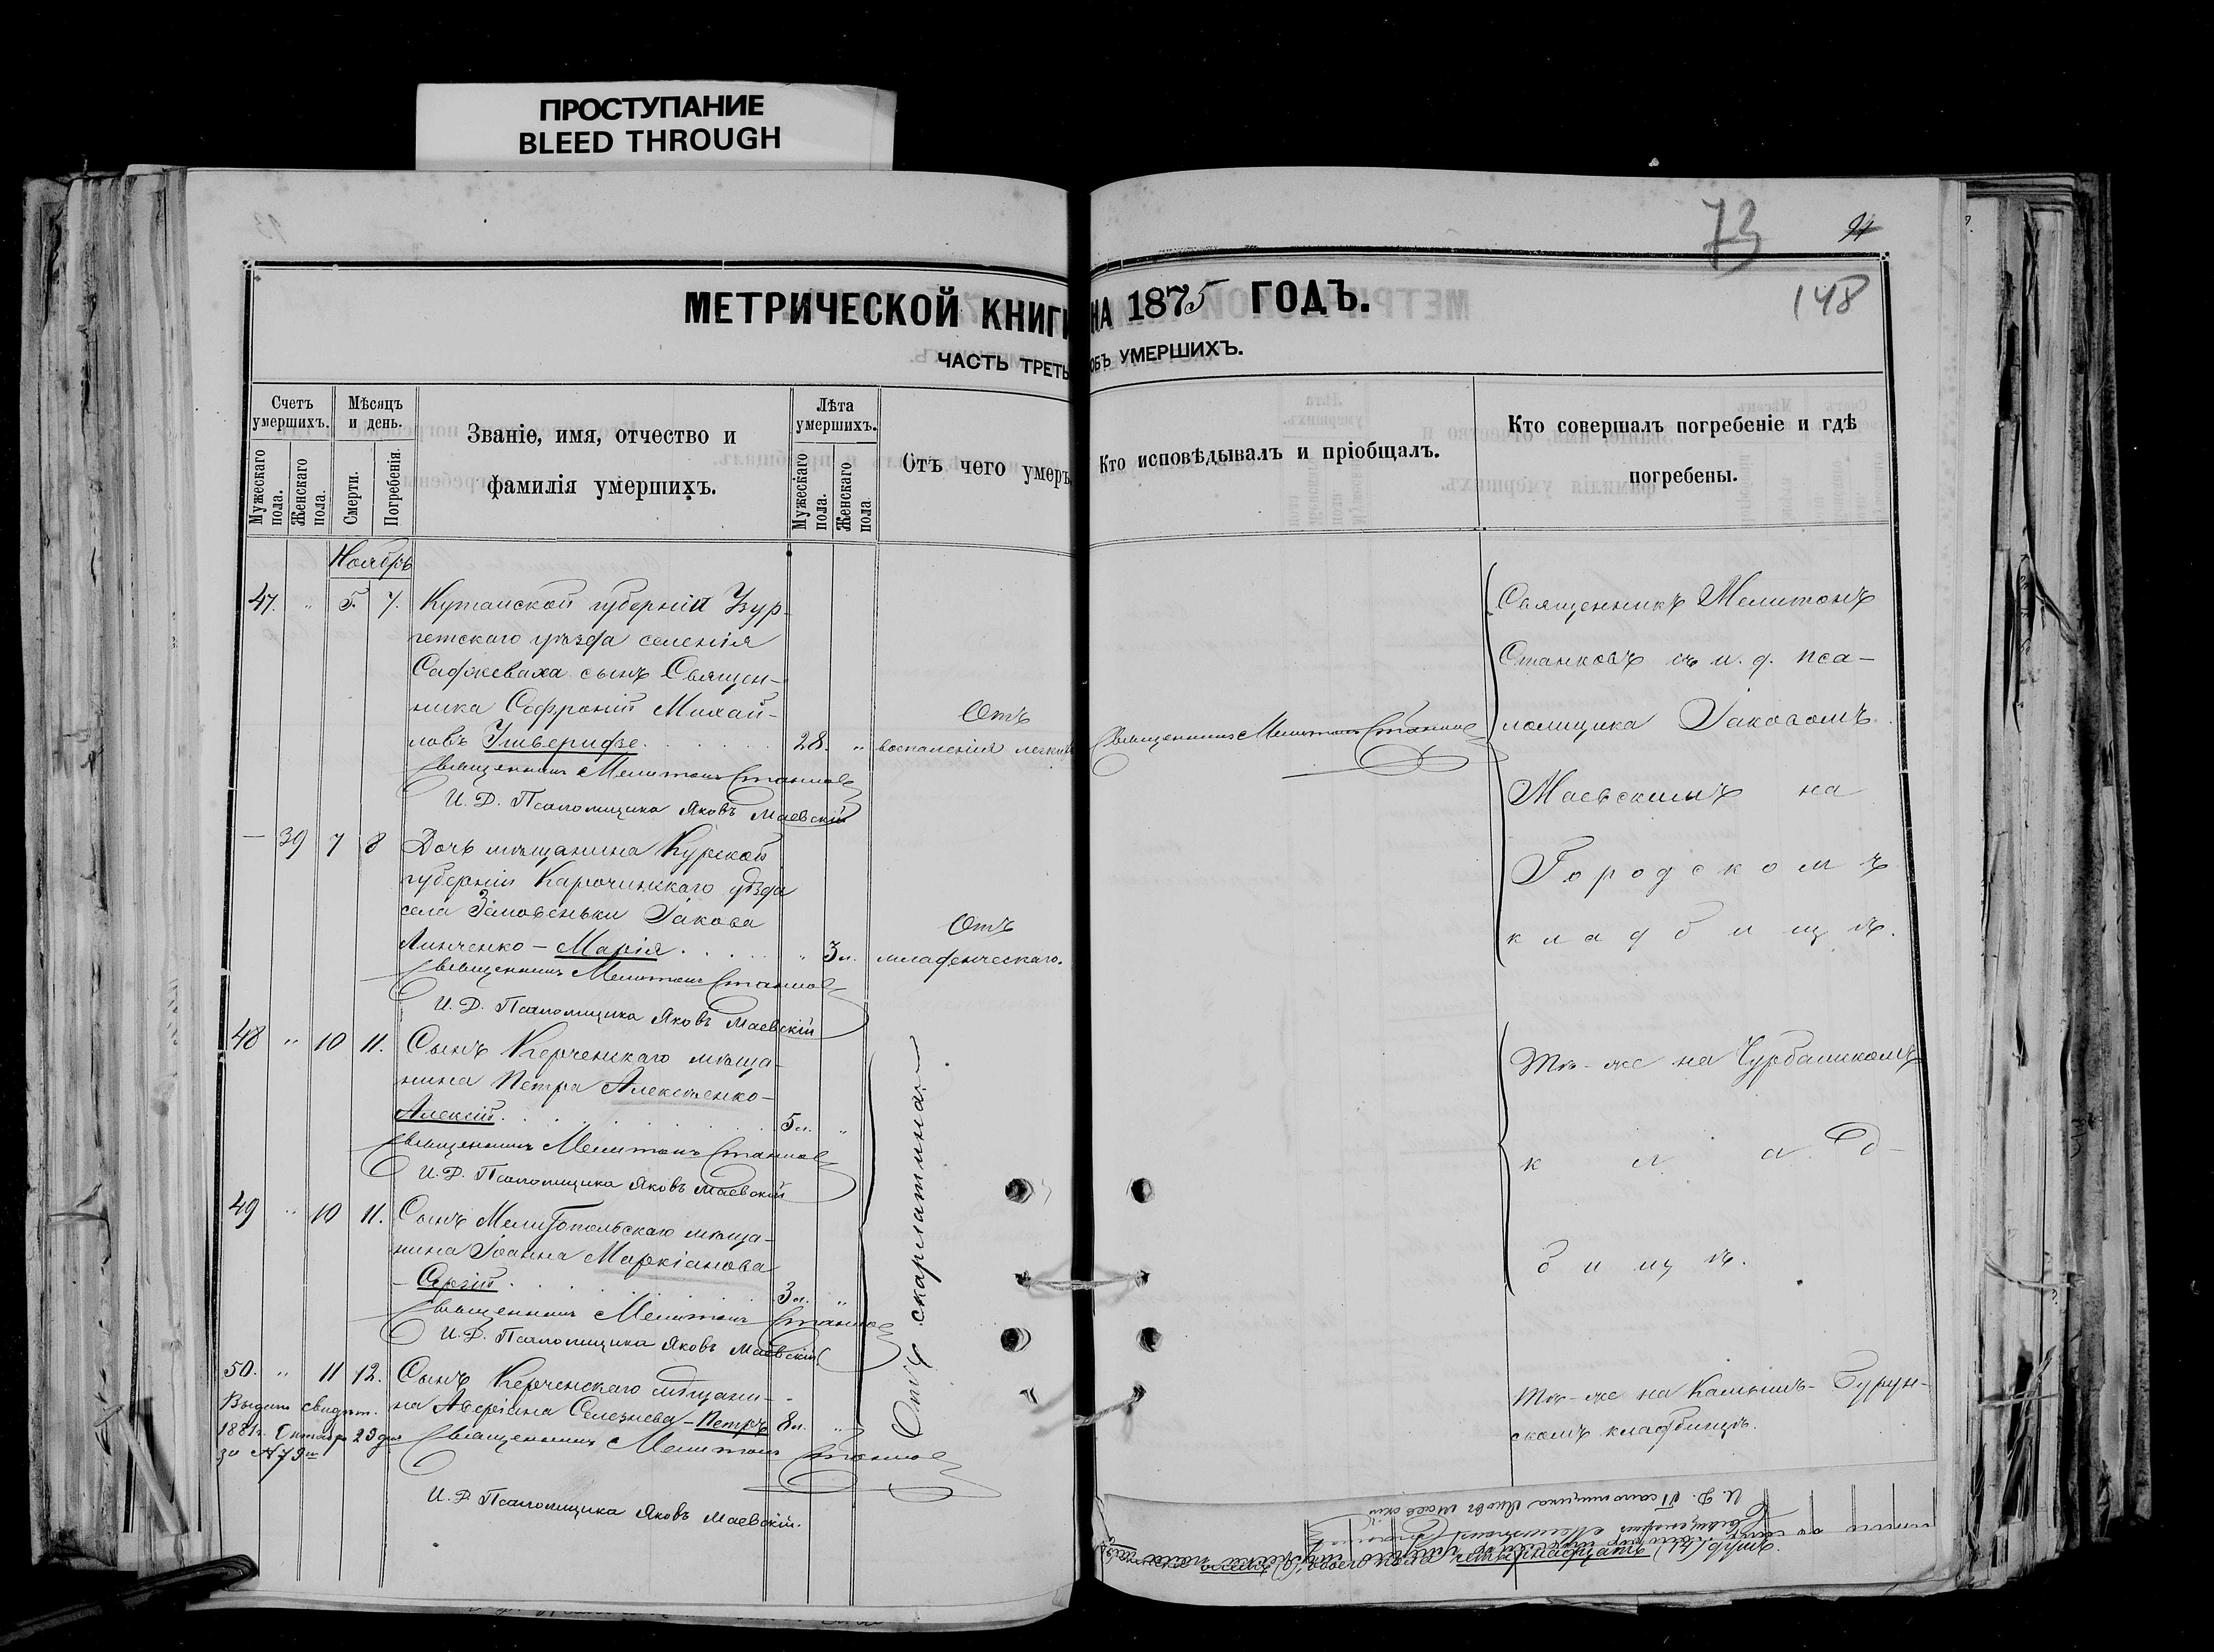 ПРОСТУПАНИЕ
BLEED THROUGH
73
148
МЕТРИЧЕСКОЙ КНИГИ НА 1875 ГОДЪ.
ЧАСТЬ ТРЕТЬ ОБЪ УМЕРШИХЪ.
Счетъ умершихъ.
Мужескаго пола.
Женскаго пола.
Мѣсяцъ и день.
Смерти.
Погребенія.
Званіе, имя, отчество и
фамилія умершихъ.
Лѣта умершихъ.
Мужескаго пола.
Женскаго пола
Отъ чего умеръ
Кто исповѣдывалъ и пріобщалъ.
Кто совершалъ погребеніе и гдѣ
погребены.
Ноябрь
47. " 5. 7. Кутаиской губерніи Узур-
гетскаго уѣзда селенія
сынъ Священ-
ника Софроній Михай-
ловъ 28. "
Отъ
воспаленія легкихъ
Священникъ Мелитонъ Станковъ
Священникъ Мелитонъ
Станковъ съ и. д. пса-
ломщика Іаковомъ
Маевскимъ на
Городскомъ
кладбищѣ.
Священникъ Мелитонъ Станковъ
И. Д. Псаломщика Яковъ Маевскій
— 39 7 8 Дочь мѣщанина Курской
губерніи Карочинскаго уѣзда
села Іакова
Линченко – Марія . . . . . " 3 л.
Отъ
младенческаго.
Священникъ Мелитонъ Станковъ
И. Д. Псаломщика Яковъ Маевскій
48 " 10 11. Сынъ Керченскаго мѣща-
нина Петра Алексѣенко-
Алексій. 5 л. "
Отъ скарлатины
Тѣ-же на Чурбашскомъ
клад-
бищѣ.
Священникъ Мелитонъ Станковъ
И. Д. Псаломщика Яковъ Маевскій
49 " 10 11. Сынъ Мелитопольскаго мѣща-
нина Іоанна Маркіанова
– Сергій. 3 л. "
Священникъ Мелитонъ Станковъ
И. Д. Псаломщика Яковъ Маевскій
50. " 11 12. Сынъ Керченскаго мѣщани-
на Аверіана Селезнева – Петръ 8 л. "
Тѣ-же на Камышъ-Бурун-
скомъ кладбищѣ.
Выдано свидѣт.
1881г. Октября 23 дня
за № 79
Священникъ Мелитонъ Станковъ
И. Д. Псаломщика Яковъ Маевскій.
Священникъ Мелитонъ
И. Д. Псаломщика Яковъ Маевскій